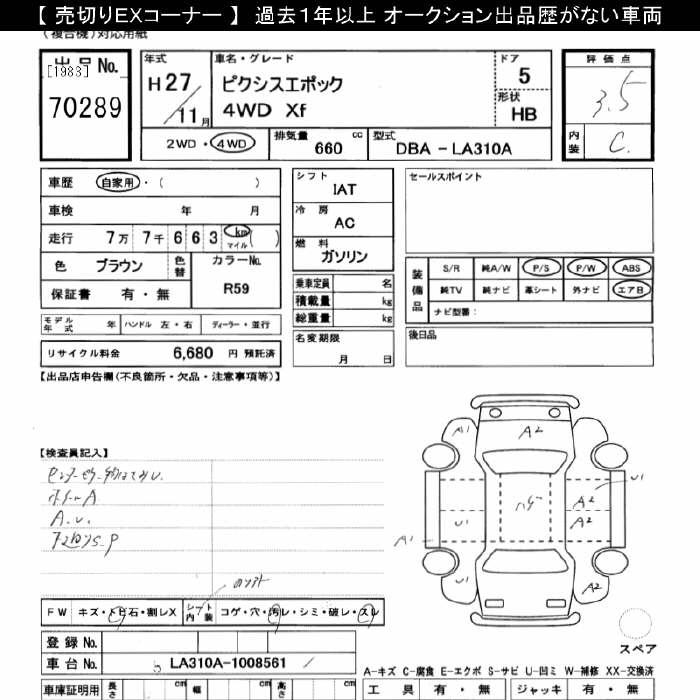 【 売切りEXコーナー 】 過去1年以上 オークション出品歴がない車両
(複合機)対応用紙
出品No. [1983]
70289
年式
H27/11月
車名・グレード
ピクシスエポック
4WD Xf
ドア
5
形状
HB
評価点
3.5
内装
C
2WD・4WD
排気量 660 cc
型式 DBA - LA310A
車歴 自家用・( )
車検 年 月
走行 7万 7千 6 6 3 km マイル ( )
色 ブラウン 色替
カラーNo.
R59
保証書 有・無
シフト
IAT
冷房
AC
燃料
ガソリン
乗車定員 名
積載量 kg
総重量 kg
セールスポイント
装備品
S/R 純A/W P/S P/W ABS
純TV 純ナビ 革シート 外ナビ エアB
ナビ型番:
モデル年式 年 ハンドル 左・右 ディーラー・並行
リサイクル料金 6,680 円 預託済
名変期限
月 日
後日品
【出品店申告欄(不良箇所・欠品・注意事項等)】
【検査員記入】
A1 A2
U1
A2
ハゲ
U1 A2
A1
U1 A2
A.U.
スペア
FW キズ・トビ石・割レX シート内装 コゲ・穴・汚レ・シミ・破レ・スレ
登録No.
車台No. LA310A-1008561
A-キズ C-腐食 E-エクボ S-サビ U-凹ミ W-補修 XX-交換済
車庫証明用 長さ cm 幅 cm 高さ cm
工具 有・無 ジャッキ 有・無